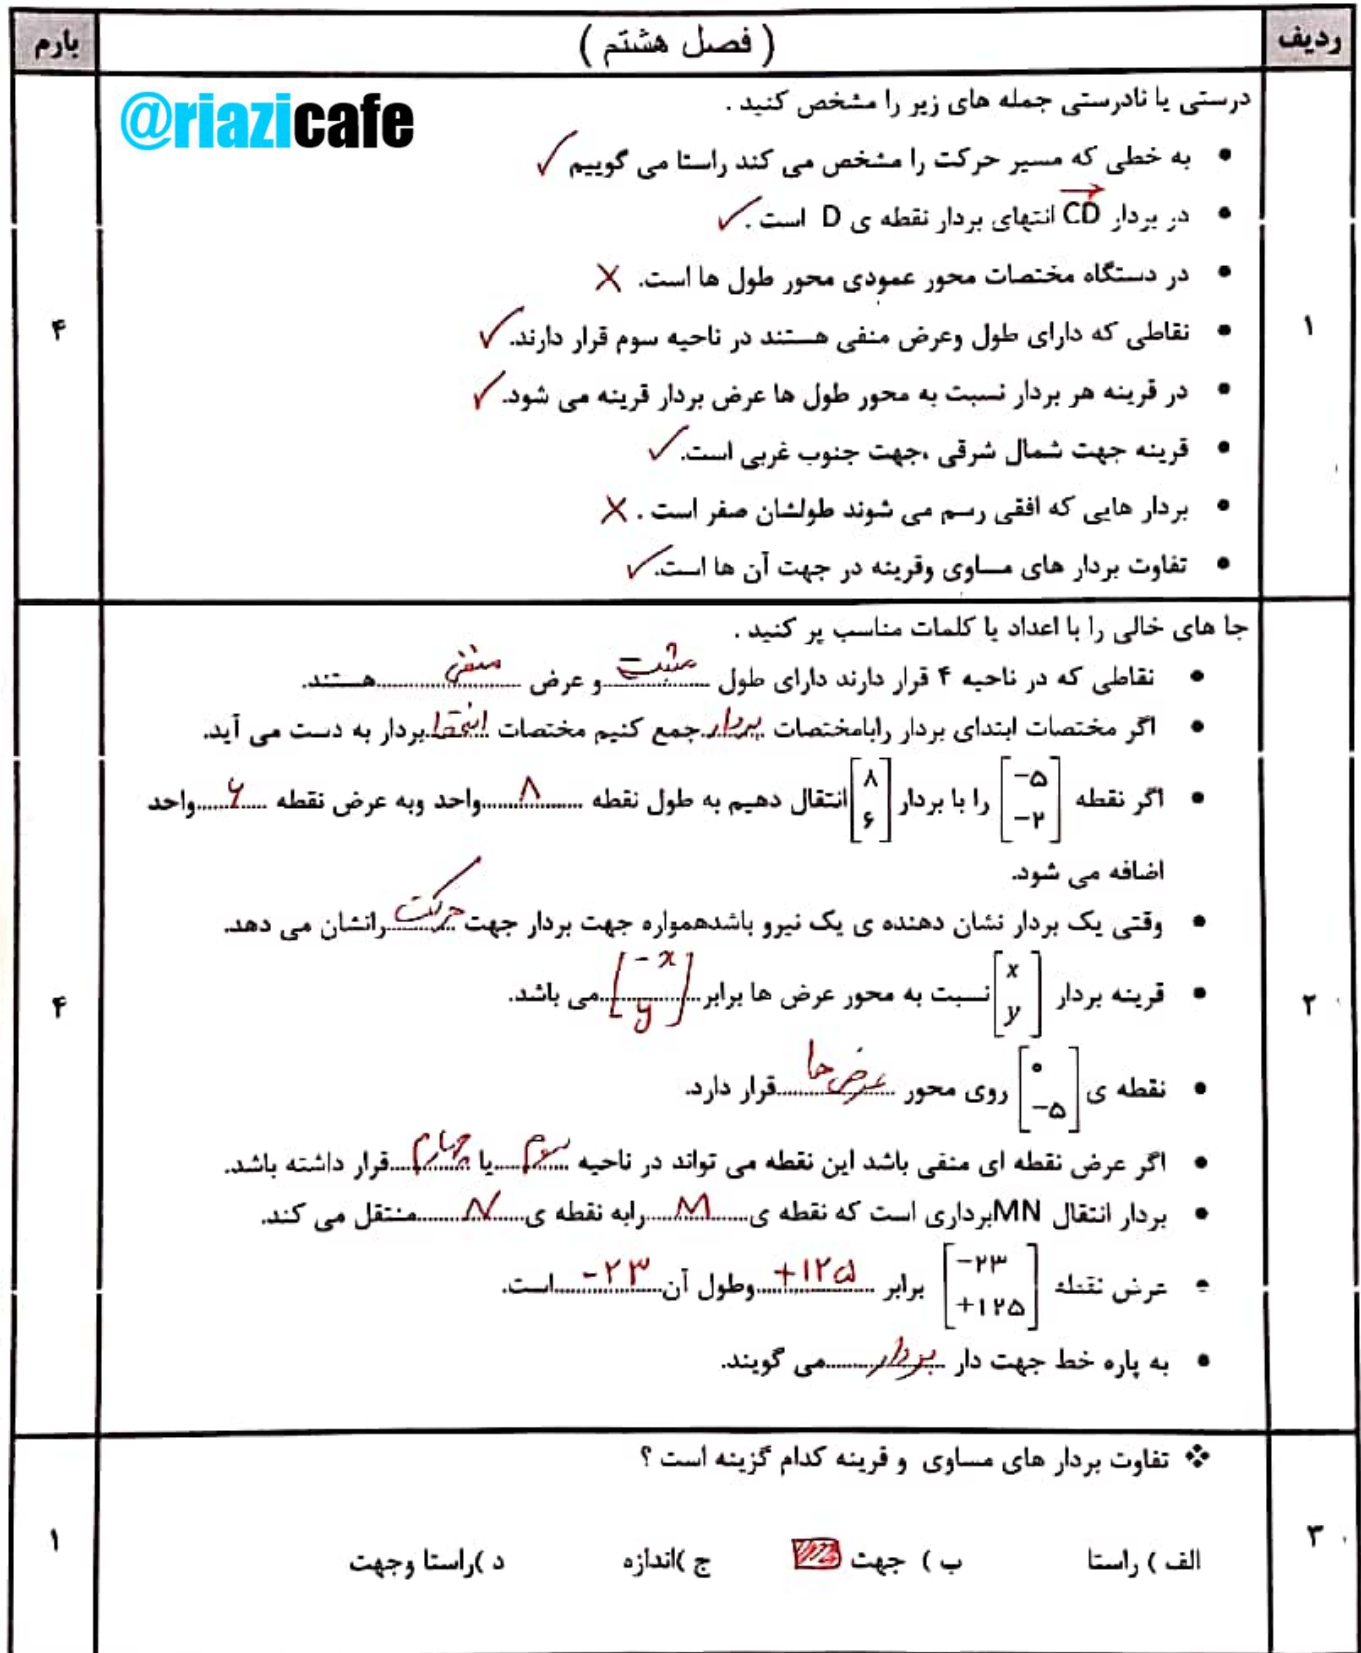 ردیف
( فصل هشتم )
بارم
@riazicafe
درستی یا نادرستی جمله های زیر را مشخص کنید .
۱
۴
• به خطی که مسیر حرکت را مشخص می کند راستا می گوییم ✓
• در بردار CD انتهای بردار نقطه ی D است . ✓
• در دستگاه مختصات محور عمودی محور طول ها است. ×
• نقاطی که دارای طول وعرض منفی هستند در ناحیه سوم قرار دارند. ✓
• در قرینه هر بردار نسبت به محور طول ها عرض بردار قرینه می شود. ✓
• قرینه جهت شمال شرقی ،جهت جنوب غربی است. ✓
• بردار هایی که افقی رسم می شوند طولشان صفر است . ×
• تفاوت بردار های مساوی وقرینه در جهت آن ها است. ✓
جا های خالی را با اعداد یا کلمات مناسب پر کنید .
۲
۴
• نقاطی که در ناحیه ۴ قرار دارند دارای طول مثبت و عرض منفی هستند.
• اگر مختصات ابتدای بردار رابامختصات بردار جمع کنیم مختصات انتها بردار به دست می آید.
• اگر نقطه [−۵ −۲] را با بردار [۸ ۶] انتقال دهیم به طول نقطه ۸ واحد وبه عرض نقطه ۶ واحد
اضافه می شود.
• وقتی یک بردار نشان دهنده ی یک نیرو باشدهمواره جهت بردار جهت حرکت رانشان می دهد.
• قرینه بردار [x y] نسبت به محور عرض ها برابر [−x y] می باشد.
• نقطه ی [۰ −۵] روی محور عرض ها قرار دارد.
• اگر عرض نقطه ای منفی باشد این نقطه می تواند در ناحیه سوم یا چهارم قرار داشته باشد.
• بردار انتقال MN برداری است که نقطه ی M رابه نقطه ی N منتقل می کند.
• عرض نقطه [−۲۳ +۱۲۵] برابر +۱۲۵ وطول آن −۲۳ است.
• به پاره خط جهت دار بردار می گویند.
❖ تفاوت بردار های مساوی و قرینه کدام گزینه است ؟
۳
۱
الف ) راستا ب ) جهت ج )اندازه د )راستا وجهت